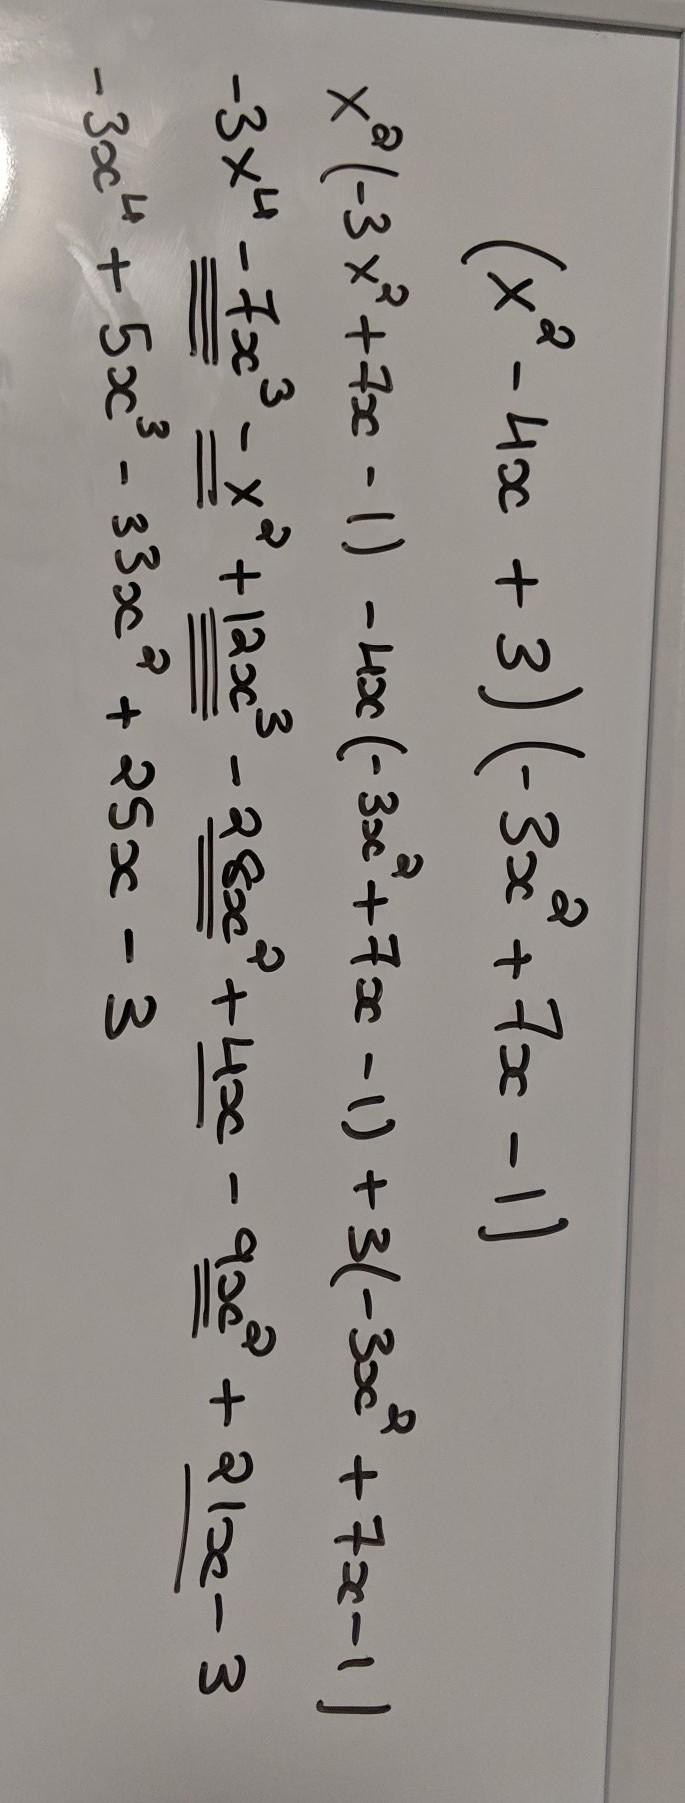 (x² - 4x + 3) (-3x² + 7x - 1)
x² (-3x² + 7x - 1) - 4x (-3x² + 7x - 1) + 3(-3x² + 7x - 1)
-3x⁴ - 7x³ - x² + 12x³ - 28x² + 4x - 9x² + 21x - 3
-3x⁴ + 5x³ - 33x² + 25x - 3